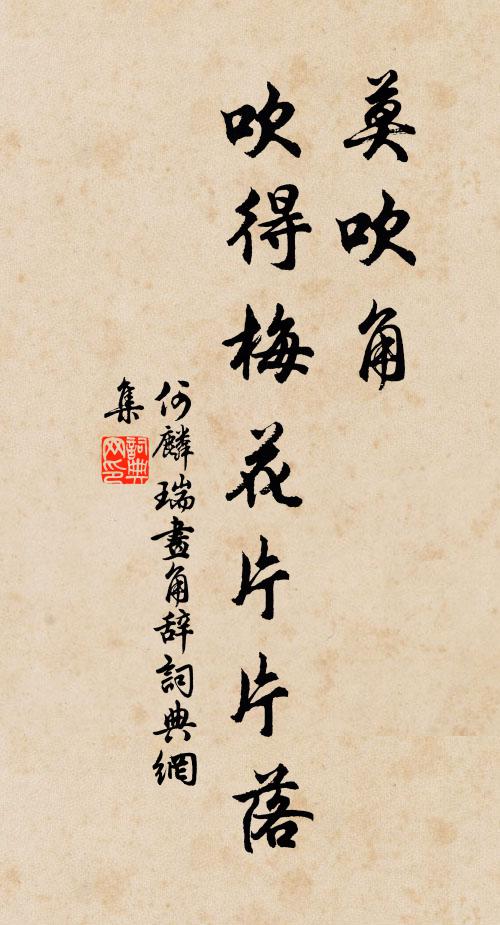 莫吹角
吹得梅花片片落
何麟瑞畫角辞詞典網
集
詞典
网印